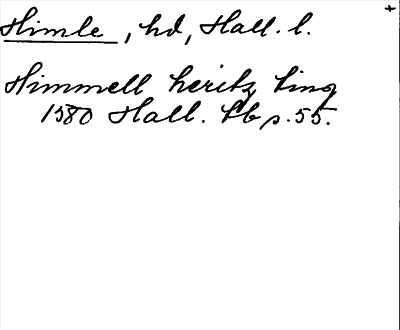 Himle, hd, Hall. l.
Himmell heritz ting
1580 Hall. tb p. 55.